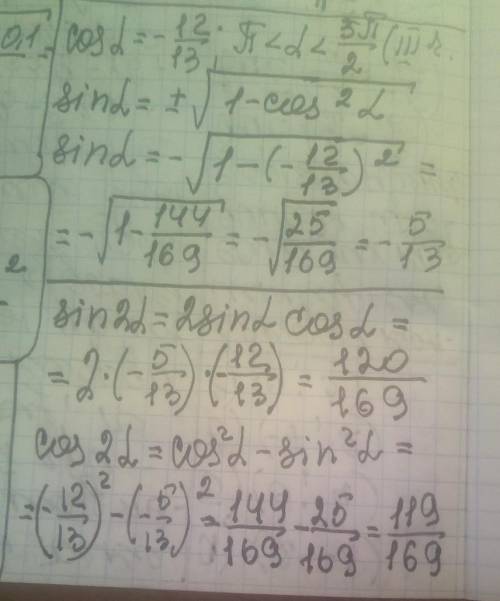 0,1
cos α = -12/13; π < α < 3π/2 (III ч.
sin α = ±√(1 - cos² α)
sin α = -√(1 - (-12/13)²) =
= -√(1 - 144/169) = -√(25/169) = -5/13
2
sin 2α = 2 sin α cos α =
= 2 · (-5/13) · (-12/13) = 120/169
cos 2α = cos² α - sin² α =
= (-12/13)² - (-5/13)² = 144/169 - 25/169 = 119/169